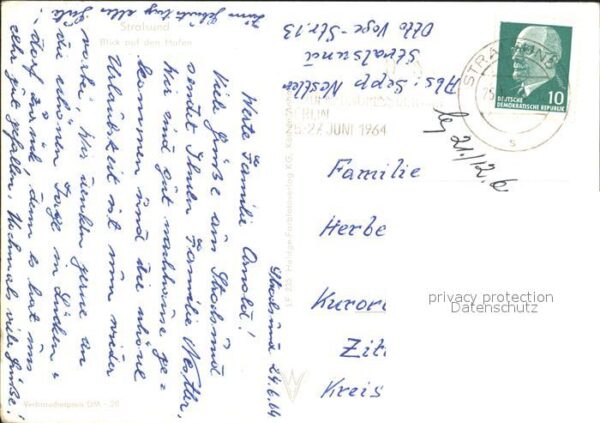 Stralsund
Blick auf den Hafen
Zum Geburtstag alles Gute
Stralsund 24.6.64
Werte Familie Arnold!
Viele Grüße aus Stralsund
sendet Ihnen Familie Nestler,
Wir sind gut nachhause ge-
kommen und die schöne
Urlaubszeit ist nun wieder
vorbei, Wir denken gerne an
die schönen Tage in Lückendorf
zurück, denn es hat uns
sehr gut gefallen, Nochmals viele Grüße!
Verbraucherpreis DM -.20
Abs: Sepp Nestler
Stralsund
Otto Voge-Str. 13
STRALSUND
BERLIN
25-27 JUNI 1964
10
DEUTSCHE
DEMOKRATISCHE REPUBLIK
21./12.6
Familie
Herbe
Kurort
Zit
Kreis
privacy protection
Datenschutz